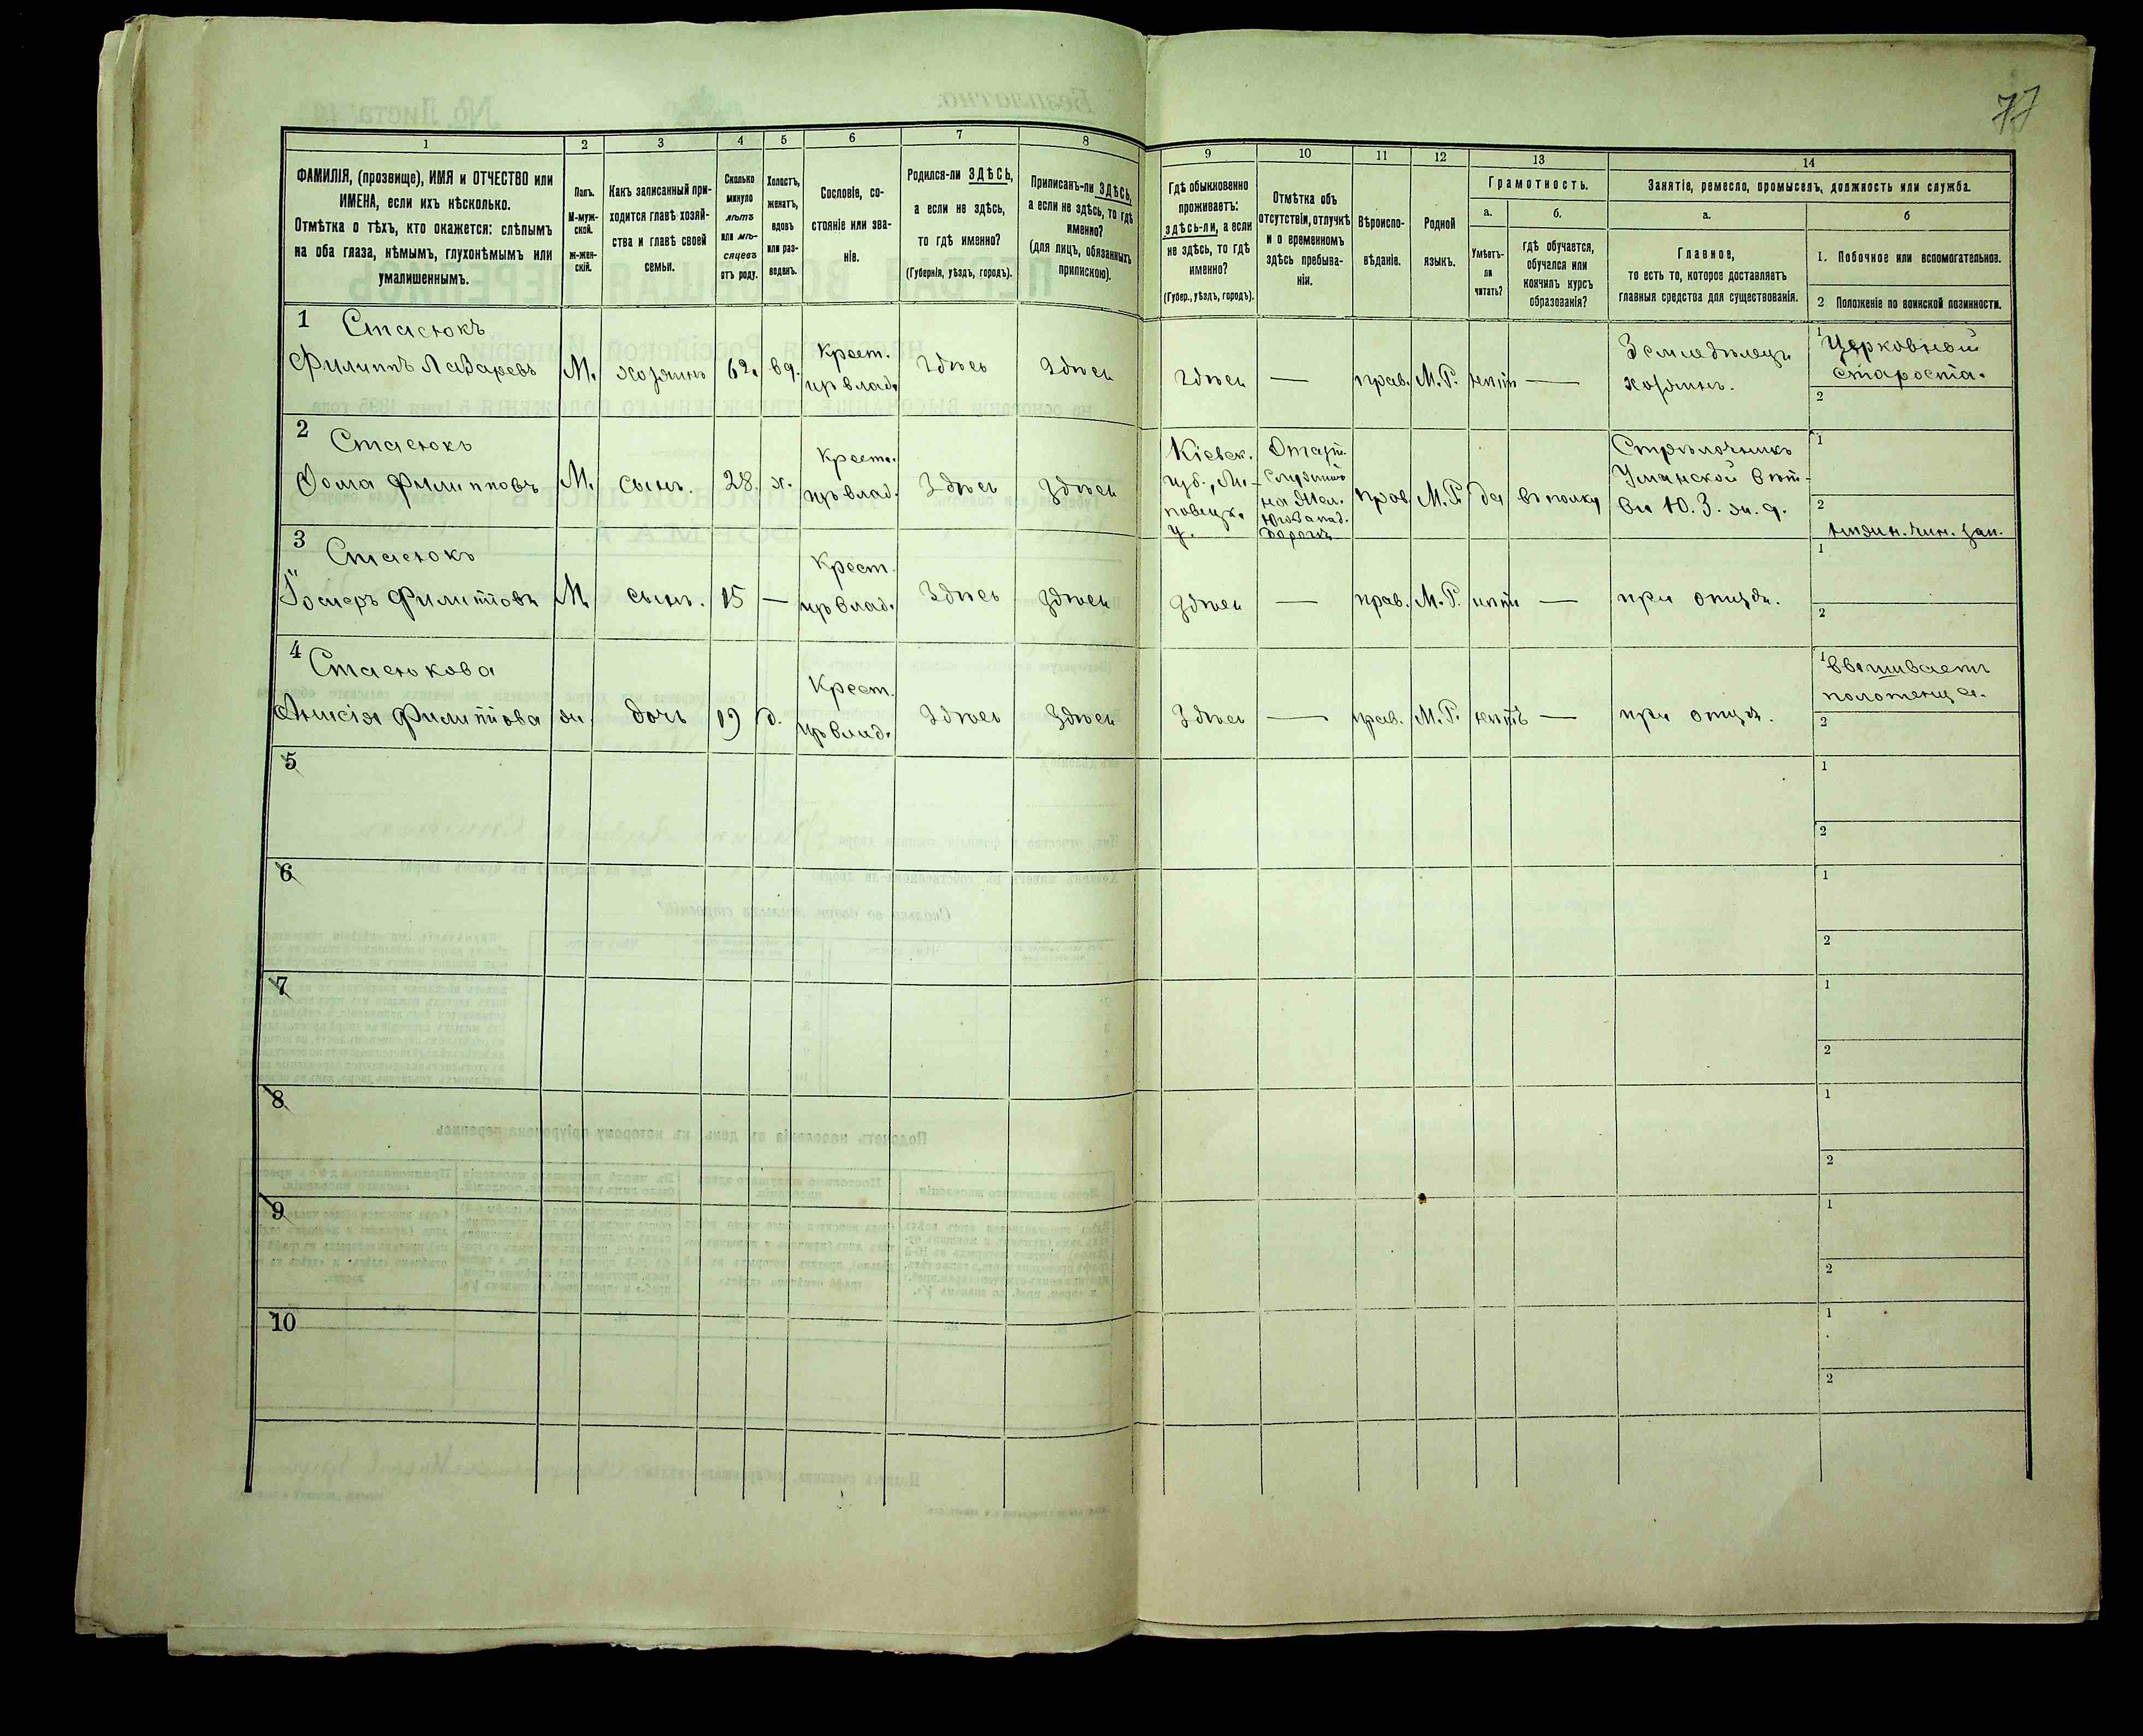 77
1
2
3
4
5
6
7
8
9
10
11
12
13
14
ФАМИЛІЯ, (прозвище), ИМЯ и ОТЧЕСТВО или
ИМЕНА, если ихъ нѣсколько.
Отмѣтка о тѣхъ, кто окажется: слѣпымъ
на оба глаза, нѣмымъ, глухонѣмымъ или
умалишеннымъ.
Полъ.
М-муж-
ской.
ж-жен-
скій.
Какъ записанный при-
ходится главѣ хозяй-
ства и главѣ своей
семьи.
Сколько
минуло
лѣтъ
или мѣ-
сяцевъ
отъ роду.
Холостъ,
женатъ,
вдовъ
или раз-
веденъ.
Сословіе, со-
стояніе или зва-
ніе.
Родился-ли ЗДѢСЬ,
а если не здѣсь,
то гдѣ именно?
(Губернія, уѣздъ, городъ).
Приписанъ-ли ЗДѢСЬ,
а если не здѣсь, то гдѣ
именно?
(для лицъ, обязанныхъ
припискою).
Гдѣ обыкновенно
проживаетъ:
здѣсь-ли, а если
не здѣсь, то гдѣ
именно?
(Губер., уѣздъ, городъ).
Отмѣтка объ
отсутствіи, отлучкѣ
и о временномъ
здѣсь пребыва-
ніи.
Вѣроиспо-
вѣданіе.
Родной
языкъ.
Грамотность.
а.
б.
Умѣетъ-
ли
читать?
гдѣ обучается,
обучался или
кончилъ курсъ
образованія?
Занятіе, ремесло, промыселъ, должность или служба.
а.
б
Главное,
то есть то, которое доставляетъ
главныя средства для существованія.
1. Побочное или вспомогательное.
2 Положеніе по воинской повинности.
1 Стасюкъ
Филиппъ Лазаревъ М. хозяинъ 62. вд. Крест.
ир влад. Здѣсь Здѣсь Здѣсь — прав. М.Р. нѣтъ — Земледѣлецъ
хозяинъ.
1 Церковный
староста.
2
2 Стасюкъ
Фома Филипповъ М. сынъ. 28. х. Крест.
ир влад. Здѣсь Здѣсь
Кіевск.
губ., Ли-
повецк.
у.
прав. М.Р. да въ полку
Стрѣлочникъ
Уманской вѣт-
ви Ю. З. ж. д.
1
2
нижн. чин. зап.
3 Стасюкъ
Филиповъ М. сынъ. 15 — Крест.
ир влад. Здѣсь Здѣсь Здѣсь — прав. М.Р. нѣтъ — при отцѣ.
1
2
4 Стасюкова
Анисія Филипова ж. дочь 19 д. Крест.
ир влад. Здѣсь Здѣсь Здѣсь — прав. М.Р. нѣтъ — при отцѣ.
1 вышиваетъ
полотенца.
2
5
1
2
6
1
2
7
1
2
8
1
2
9
1
2
10
1
2